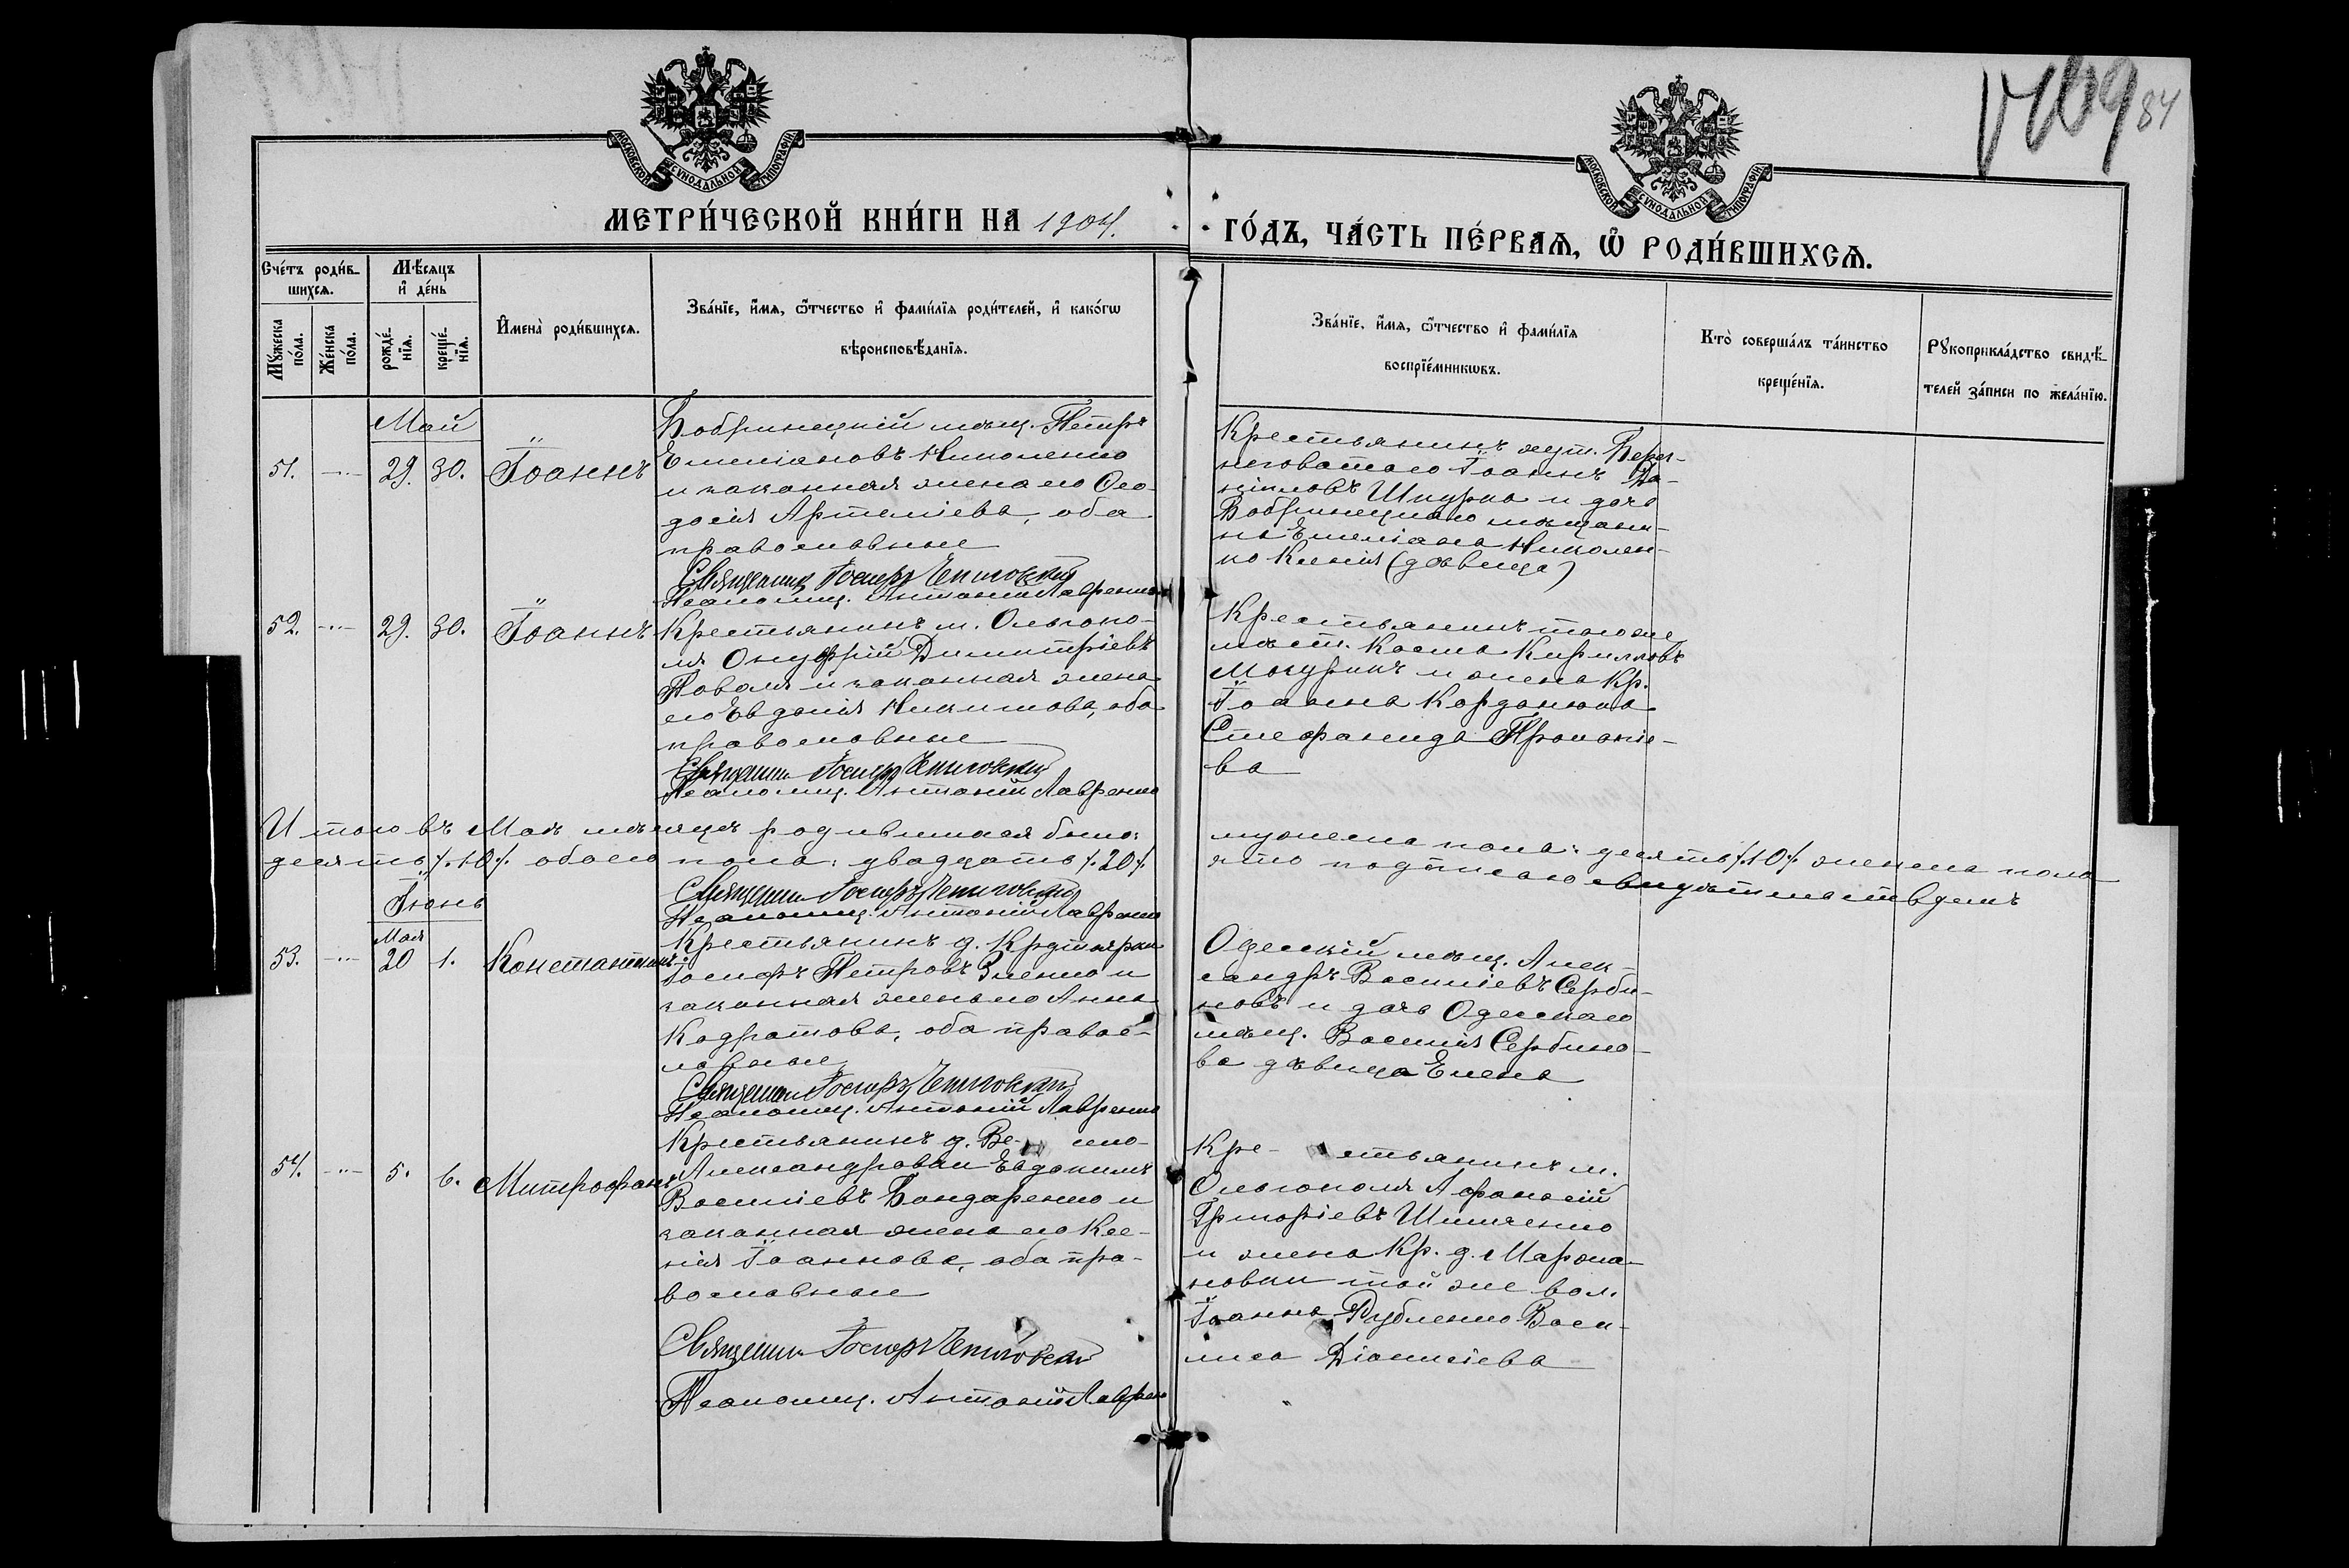 1469 84
МОСКОВСКОЙ СѴНОДАЛЬНОЙ ТИПОГРАФІИ
МОСКОВСКОЙ СѴНОДАЛЬНОЙ ТИПОГРАФІИ
МЕТРИ́ЧЕСКОЙ КНИ́ГИ НА 1904.
ГО́ДЪ, ЧА́СТЬ ПЕ́РВАѦ, Ѽ РОДИ́ВШИХСѦ.
Сче́тъ роди́в-
шихсѧ.
Мѣ́сѧцъ
и҆ де́нь
Мꙋ́жеска
по́ла.
Же́нска
по́ла.
рожде́-
нїѧ.
креще́-
нїѧ.
И҆мена̀ роди́вшихсѧ.
Зва́нїе, и҆́мѧ, ѻ҆́тчество и҆ фами́лїѧ роди́телей, и҆ како́гѡ
вѣроисповѣ́данїѧ.
Зва́нїе, и҆́мѧ, ѻ҆́тчество и҆ фами́лїѧ
воспрїе́мникѡвъ.
Кто̀ соверша́лъ та́инство
креще́нїѧ.
Рꙋкоприкла́дство свидѣ́-
телей за́писи по жела́нїю.
Май
51. -"- 29. 30. Іоаннъ
Бобринецкій мѣщ. Петръ
Емиліановъ Николенко
и законная жена его Ѳео-
досія Артеміева, оба
православные
Священникъ Іосифъ
Псаломщ. Антоній Лавренко
Крестьянинъ мѣст. Берез-
неговатаго Іоаннъ Да-
ніиловъ Шкурко и дочь
Бобринецкаго мѣщани-
на Емиліана Николен-
ко Ксенія (дѣвица)
52. -"- 29. 30. Іоаннъ
Крестьянинъ м. Ольгопо-
ля Онуфрій Димитріевъ
Коваль и законная жена
его Евдокія Никитова, оба
православные
Священникъ Іосифъ
Псаломщ. Антоній Лавренко
Крестьянинъ того же
мѣст. Косма Кирилловъ
Мазуринъ и жена Кр.
Іоанна Корданюка
Стефанида Прокопіе-
ва
Итого въ Маѣ мѣсяцѣ родившихся было: мужеска пола: десять /.10/. женска пола
десять /.10/. обоего пола: двадцать /.20/. что подписью свидѣтельствуемъ
Священникъ Іосифъ
Псаломщ. Антоній Лавренко
Іюнь
Мая
53. -"- 20 1. Константинъ
Крестьянинъ д.
Іосифъ Петровъ Зленко и
законная жена его Анна
Кодратова, оба правос-
лавные
Священникъ Іосифъ
Псаломщ. Антоній Лавренко
Одесскій мѣщ. Алек-
сандръ Васильевъ Серби-
новъ и дочь Одесскаго
мѣщ. Василія Сербино-
ва дѣвица Елена
54. -"- 5. 6. Митрофанъ
Крестьянинъ д. Ве- лико-
Александровки Евдокимъ
Василіевъ Бондаренко и
законная жена его Ксе-
нія Іоаннова, оба пра-
вославные
Священникъ Іосифъ
Псаломщ. Антоній Лавренко
Кре- стьянинъ м.
Ольгополя Афанасій
Григоріевъ Шинченко
и жена Кр. д. Марьяа-
новки той же вол.
Іоанна Рубленко Васи-
лиса Діонисіева